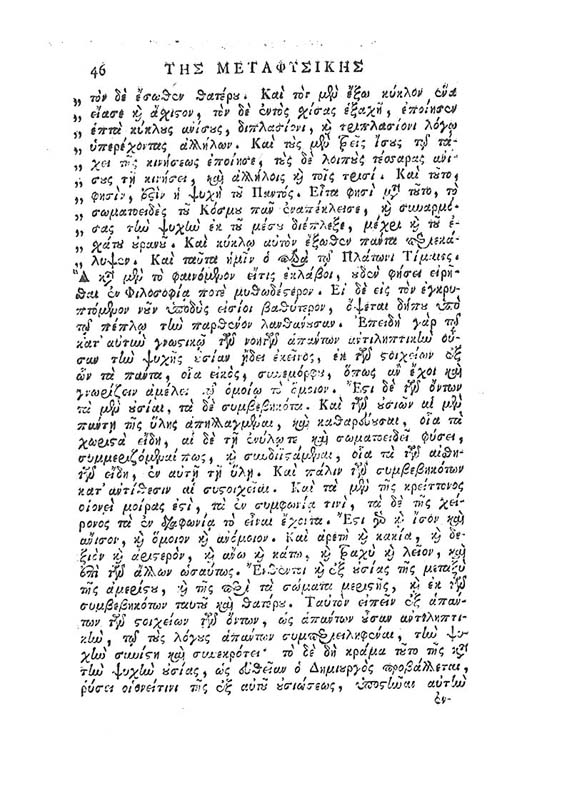 46 ΤΗΣ ΜΕΤΑΦΥΣΙΚΗΣ
„ τὸν δὲ ἔσωθεν θατέρου. Καὶ τὸν μὲν ἔξω κύκλον ἕνα
„ εἴασε καὶ ἄχιστον, τὸν δὲ ἐντὸς χίσας ἑξαχῆ, ἐποίησεν
„ ἑπτὰ κύκλους ἀνίσους, διπλασίονι, καὶ τριπλασίονι λόγῳ
„ ὑπερέχοντας ἀλλήλων. Καὶ τοὺς μὲν τρεῖς ἴσους τῷ τά-
„ χει τῆς κινήσεως ἐποίησε, τοὺς δὲ λοιποὺς τέσσαρας ἀνί-
„ σους τῇ κινήσει, καὶ ἀλλήλοις καὶ τοῖς τρισί. Καὶ τοῦτο,
„ φησὶν, ἐστὶν ἡ ψυχὴ τοῦ Παντός. Εἶτα φησὶ μετὰ τοῦτο, τὸ
„ σωματοειδὲς τοῦ Κόσμου πᾶν ἐναπέκλεισε, καὶ συναρμό-
„ σας τὴν ψυχὴν ἐκ τοῦ μέσου διέπλεξε, μέχρι καὶ τοῦ ἐ-
„ χάτου οὐρανοῦ. Καὶ κύκλῳ αὐτὸν ἔξωθεν πάντα περιεκά-
„ λυψεν. Καὶ ταῦτα ἡμῖν ὁ παρὰ τῷ Πλάτωνι Τίμαιος.
Ἃ κατὰ μὲν τὸ φαινόμενον εἴτις ἐκλάβοι, οὐδὲν φήσει εἰρῆ-
θαι ἐν Φιλοσοφίᾳ ποτὲ μυθωδέστερον. Εἰ δὲ εἰς τὸν ἐγκρυ-
πτόμενον νοῦν ὑποδὺς εἰσίοι βαθύτερον, ὄψεται δήπου ὑπὸ
τῷ πέπλῳ τὴν παρθένον λανθάνουσαν. Ἐπειδὴ γὰρ τῷ
κατ' αὐτὴν γνωστικῷ τῶν νοητῶν ἁπάντων ἀντιληπτικὴν οὖ-
σαν τὴν ψυχῆς οὐσίαν ᾔδει ἐκεῖνος, ἐκ τῶν στοιχείων ἐξ
ὧν τὰ πάντα, οἷα εἰκὸς, συνεμόρφου, ὅπως ἂν ἔχοι καὶ
γνωρίζειν ἀμέλει τῷ ὁμοίῳ τὸ ὅμοιον. Ἔστι δὲ τῶν ὄντων
τὰ μὲν οὐσίαι, τὰ δὲ συμβεβηκότα. Καὶ τῶν οὐσιῶν αἱ μὲν
παντῇ τῆς ὕλης ἀπηλλαγμέναι, καὶ καθαρεύουσαι, οἷα τὰ
χωριστὰ εἴδη, αἱ δὲ τῇ ἐνύλῳτε καὶ σωματοειδεῖ φύσει,
συμμεριζόμεναί πως, καὶ συνδιϊστάμεναι, οἷα τὰ τῶν αἰσθη-
τῶν εἴδη, ἐν αὐτῇ τῇ ὕλῃ. Καὶ πάλιν τῶν συμβεβηκότων
κατ' ἀντίθεσιν αἱ συστοιχεῖαι. Καὶ τὰ μὲν τῆς κρείττονος
οἱονεὶ μοίρας ἐστὶ, τὰ ἐν συμφωνίᾳ τινὶ, τὰ δὲ τῆς χεί-
ρονος τὰ ἐν διαφωνίᾳ τὸ εἶναι ἔχοντα. Ἔστι γὰρ καὶ ἴσον καὶ
ἄνισον, καὶ ὅμοιον καὶ ἀνόμοιον. Καὶ ἀρετὴ καὶ κακία, καὶ δε-
ξιὸν καὶ ἀριστερὸν, καὶ ἄνω καὶ κάτω, καὶ τραχὺ καὶ λεῖον, καὶ
ἐπὶ τῶν ἄλλων ὡσαύτως. καὶ ἐξ οὐσίας τῆς μεταξὺ
τῆς ἀμερίστου, καὶ τῆς περὶ τὰ σώματα μεριστῆς, καὶ ἐκ τῶν
συμβεβηκότων ταυτοῦ καὶ θατέρου. Ταυτὸν εἰπεῖν ἐξ ἁπάν-
των τῶν στοιχείων τῶν ὄντων, ὡς ἁπάντων οὖσαν ἀντιληπτι-
κὴν, τῷ τοὺς λόγους ἁπάντων συμπεριειληφέναι, τὴν ψυ-
χὴν συνίστη καὶ συνεκρότει· τὸ δὲ δὴ κρᾶμα τοῦτο τῆς κατὰ
τὴν ψυχὴν οὐσίας, ὡς εὐθεῖαν ὁ Δημιουργὸς προβάλλεται,
ῥύσει οἱονείτινι τῆς ἐξ αὐτοῦ οὐσιώσεως, ὑποστῆναι αὐτὴν
ἐν-